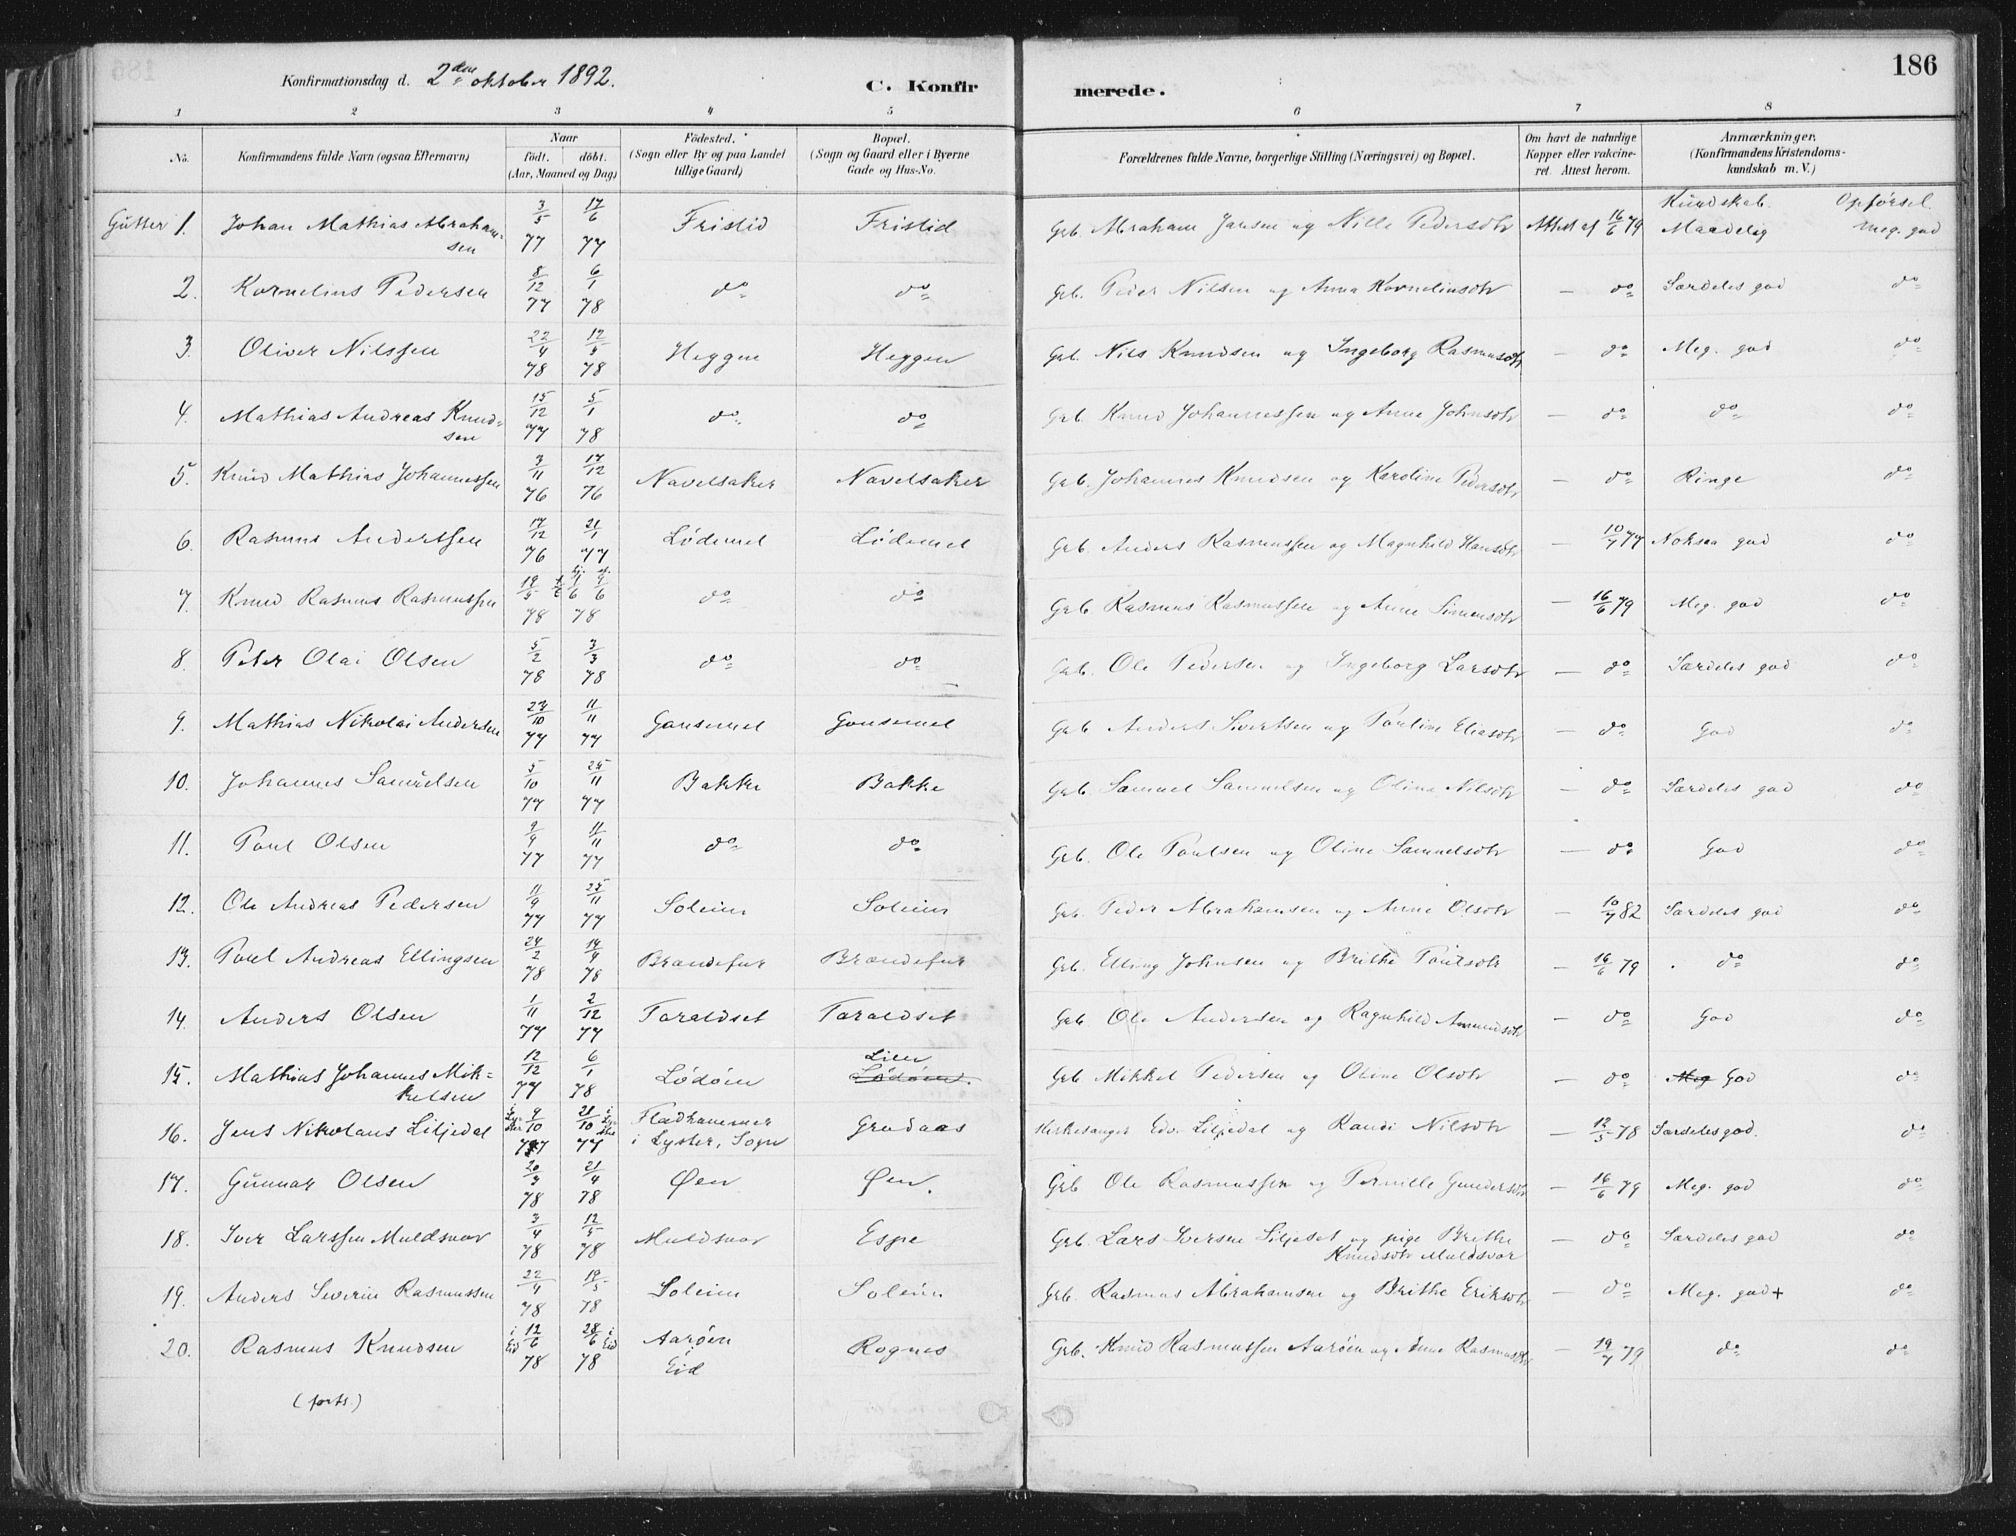 186
Konfirmationsdag d. 2den oktober 1892.
C. Konfirmerede.
1 2 3 4 5 6 7 8
No. Konfirmandens fulde Navn (ogsaa Efternavn) Naar födt. döbt. (Aar, Maaned og Dag) Födested. (Sogn eller By og paa Landet tillige Gaard) Bopæl. (Sogn og Gaard eller i Byerne Gade og Hus-No. Forældrenes fulde Navne, borgerlige Stilling (Næringsvei) og Bopæl. Om havt de naturlige Kopper eller vakcineret. Attest herom. Anmærkninger. (Konfirmandens Kristendomskundskab m. V.)
Kundskab. Opförsel
Gutter 1. Johan Mathias Abrahamsen 3/5 77 17/6 77 Fristid Fristid Grb. Abraham Jansen og Nille Pedersdtr Attest af 16/6 79 Maadelig Meg. god
2. Kornelius Pedersen 8/12 77 6/1 78 do do Grb. Peder Nilsen og Anna Kornelinsdtr — do Særdeles god do
3. Oliver Nilssen 22/4 78 12/5 78 Heggen Heggen Grb. Nils Knudsen og Ingeborg Rasmusdtr — do Meg. god do
4. Mathias Andreas Knudsen 15/12 77 5/1 78 do do Grb. Knud Johannessen og Anne Johnsdtr — do do do
5. Knud Mathias Johannessen 3/11 76 17/12 76 Navelsaker Navelsaker Grb. Johannes Knudsen og Karoline Pedersdtr — do Ringe do
6. Rasmus Anderssen 17/12 76 21/1 77 Lödemel Lödemel Grb. Anders Rasmussen og Magnhild Hansdtr — 10/7 77 Noksaa god do
7. Knud Rasmus Rasmussen 19/5 78 1/6 9/6 78 do do Grb Rasmus Rasmussen og Anne Simensdtr — 16/6 79 Meg. god do
8. Peter Olai Olsen 5/2 78 3/3 78 do do Grb. Ole Pedersen og Ingeborg Larsdtr — do Særdeles god do
9. Mathias Nikolai Andersen 27/10 77 11/11 77 Gausemel Gausemel Grb Anders Sivertsen og Pauline Eliasdtr — do God do
10. Johannes Samuelsen 5/10 77 25/11 77 Bakke Bakke Grb. Samuel Samuelsen og Oline Nilsdtr — do Særdeles god do
11. Paul Olsen 9/9 77 11/11 77 do do Grb. Ole Paulsen og Oline Samuelsdtr — do God do
12. Ole Andreas Pedersen 11/9 77 25/11 77 Soleim Soleim Grb. Peder Abrahamsen og Anne Olsdtr — 10/7 82 Særdeles god do
13. Paul Andreas Ellingsen 24/2 78 14/4 78 Brændefur Brændefur Grb. Elling Johnsen og Brithe Paulsdtr — 16/6 79 do do
14. Anders Olsen 1/11 77 2/12 77 Taraldset Taraldset Grb Ole Andersen og Ragnhild Amundsdtr — do God do
15. Mathias Johannes Mikkelsen 12/12 77 6/1 78 Lödöen Lien Lödöen. Grb Mikkel Pedersen og Oline Olsdtr — do Meg God do
16. Jens Nikolaus Liljedal i Lyster 9/10 77 21/10 77 i Lyster Fladhammer i Lyster, Sogn Grodaas Kirkesanger Edv. Liljedal og Randi Nilsdtr — 12/5 78 Særdeles god. do
17. Gunnar Olsen 20/3 78 21/4 78 Øen Øen. Grb Ole Rasmussen og Pernille Gundersdtr — 16/6 79 Meg. god do
18. Iver Larssen Muldsvor 3/4 78 12/5 78 Muldsvor Espe Grb. Lars Iversen Liljeset og pige Brithe Knudsdtr Muldsvor — do Særdeles god do
19. Anders Severin Rasmussen 22/4 78 19/5 78 Soleim Soleim Grb. Rasmus Abrahamsen og Brithe Eriksdtr — do Meg. god+ do
20. Rasmus Knudsen i Eid 12/6 78 28/6 78 i Eid Aaröen Eid Rognes Grb. Knud Rasmussen Aaröen og Anne Rasmusdtr — 19/7 79 do do
(forts.)